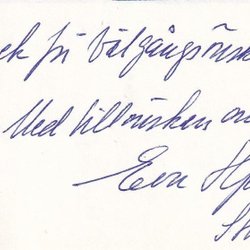 ck för Välgångsönsk
Med tillönskan om
Eva Hj